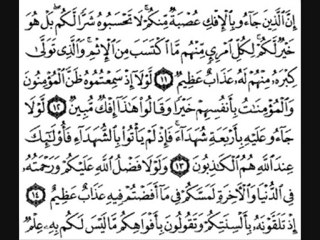 إِنَّ الَّذِينَ جَاءُو بِالْإِفْكِ عُصْبَةٌ مِّنكُمْ لَا تَحْسَبُوهُ شَرًّا لَّكُم بَلْ هُوَ
خَيْرٌ لَّكُمْ لِكُلِّ امْرِئٍ مِّنْهُم مَّا اكْتَسَبَ مِنَ الْإِثْمِ وَالَّذِي تَوَلَّىٰ
كِبْرَهُ مِنْهُمْ لَهُ عَذَابٌ عَظِيمٌ ١١ لَّوْلَا إِذْ سَمِعْتُمُوهُ ظَنَّ الْمُؤْمِنُونَ
وَالْمُؤْمِنَاتُ بِأَنفُسِهِمْ خَيْرًا وَقَالُوا هَٰذَا إِفْكٌ مُّبِينٌ ١٢ لَّوْلَا
جَاءُو عَلَيْهِ بِأَرْبَعَةِ شُهَدَاءَ فَإِذْ لَمْ يَأْتُوا بِالشُّهَدَاءِ فَأُولَٰئِكَ
عِندَ اللَّهِ هُمُ الْكَاذِبُونَ ١٣ وَلَوْلَا فَضْلُ اللَّهِ عَلَيْكُمْ وَرَحْمَتُهُ
فِي الدُّنْيَا وَالْآخِرَةِ لَمَسَّكُمْ فِي مَا أَفَضْتُمْ فِيهِ عَذَابٌ عَظِيمٌ ١٤
إِذْ تَلَقَّوْنَهُ بِأَلْسِنَتِكُمْ وَتَقُولُونَ بِأَفْوَاهِكُم مَّا لَيْسَ لَكُم بِهِ عِلْمٌ